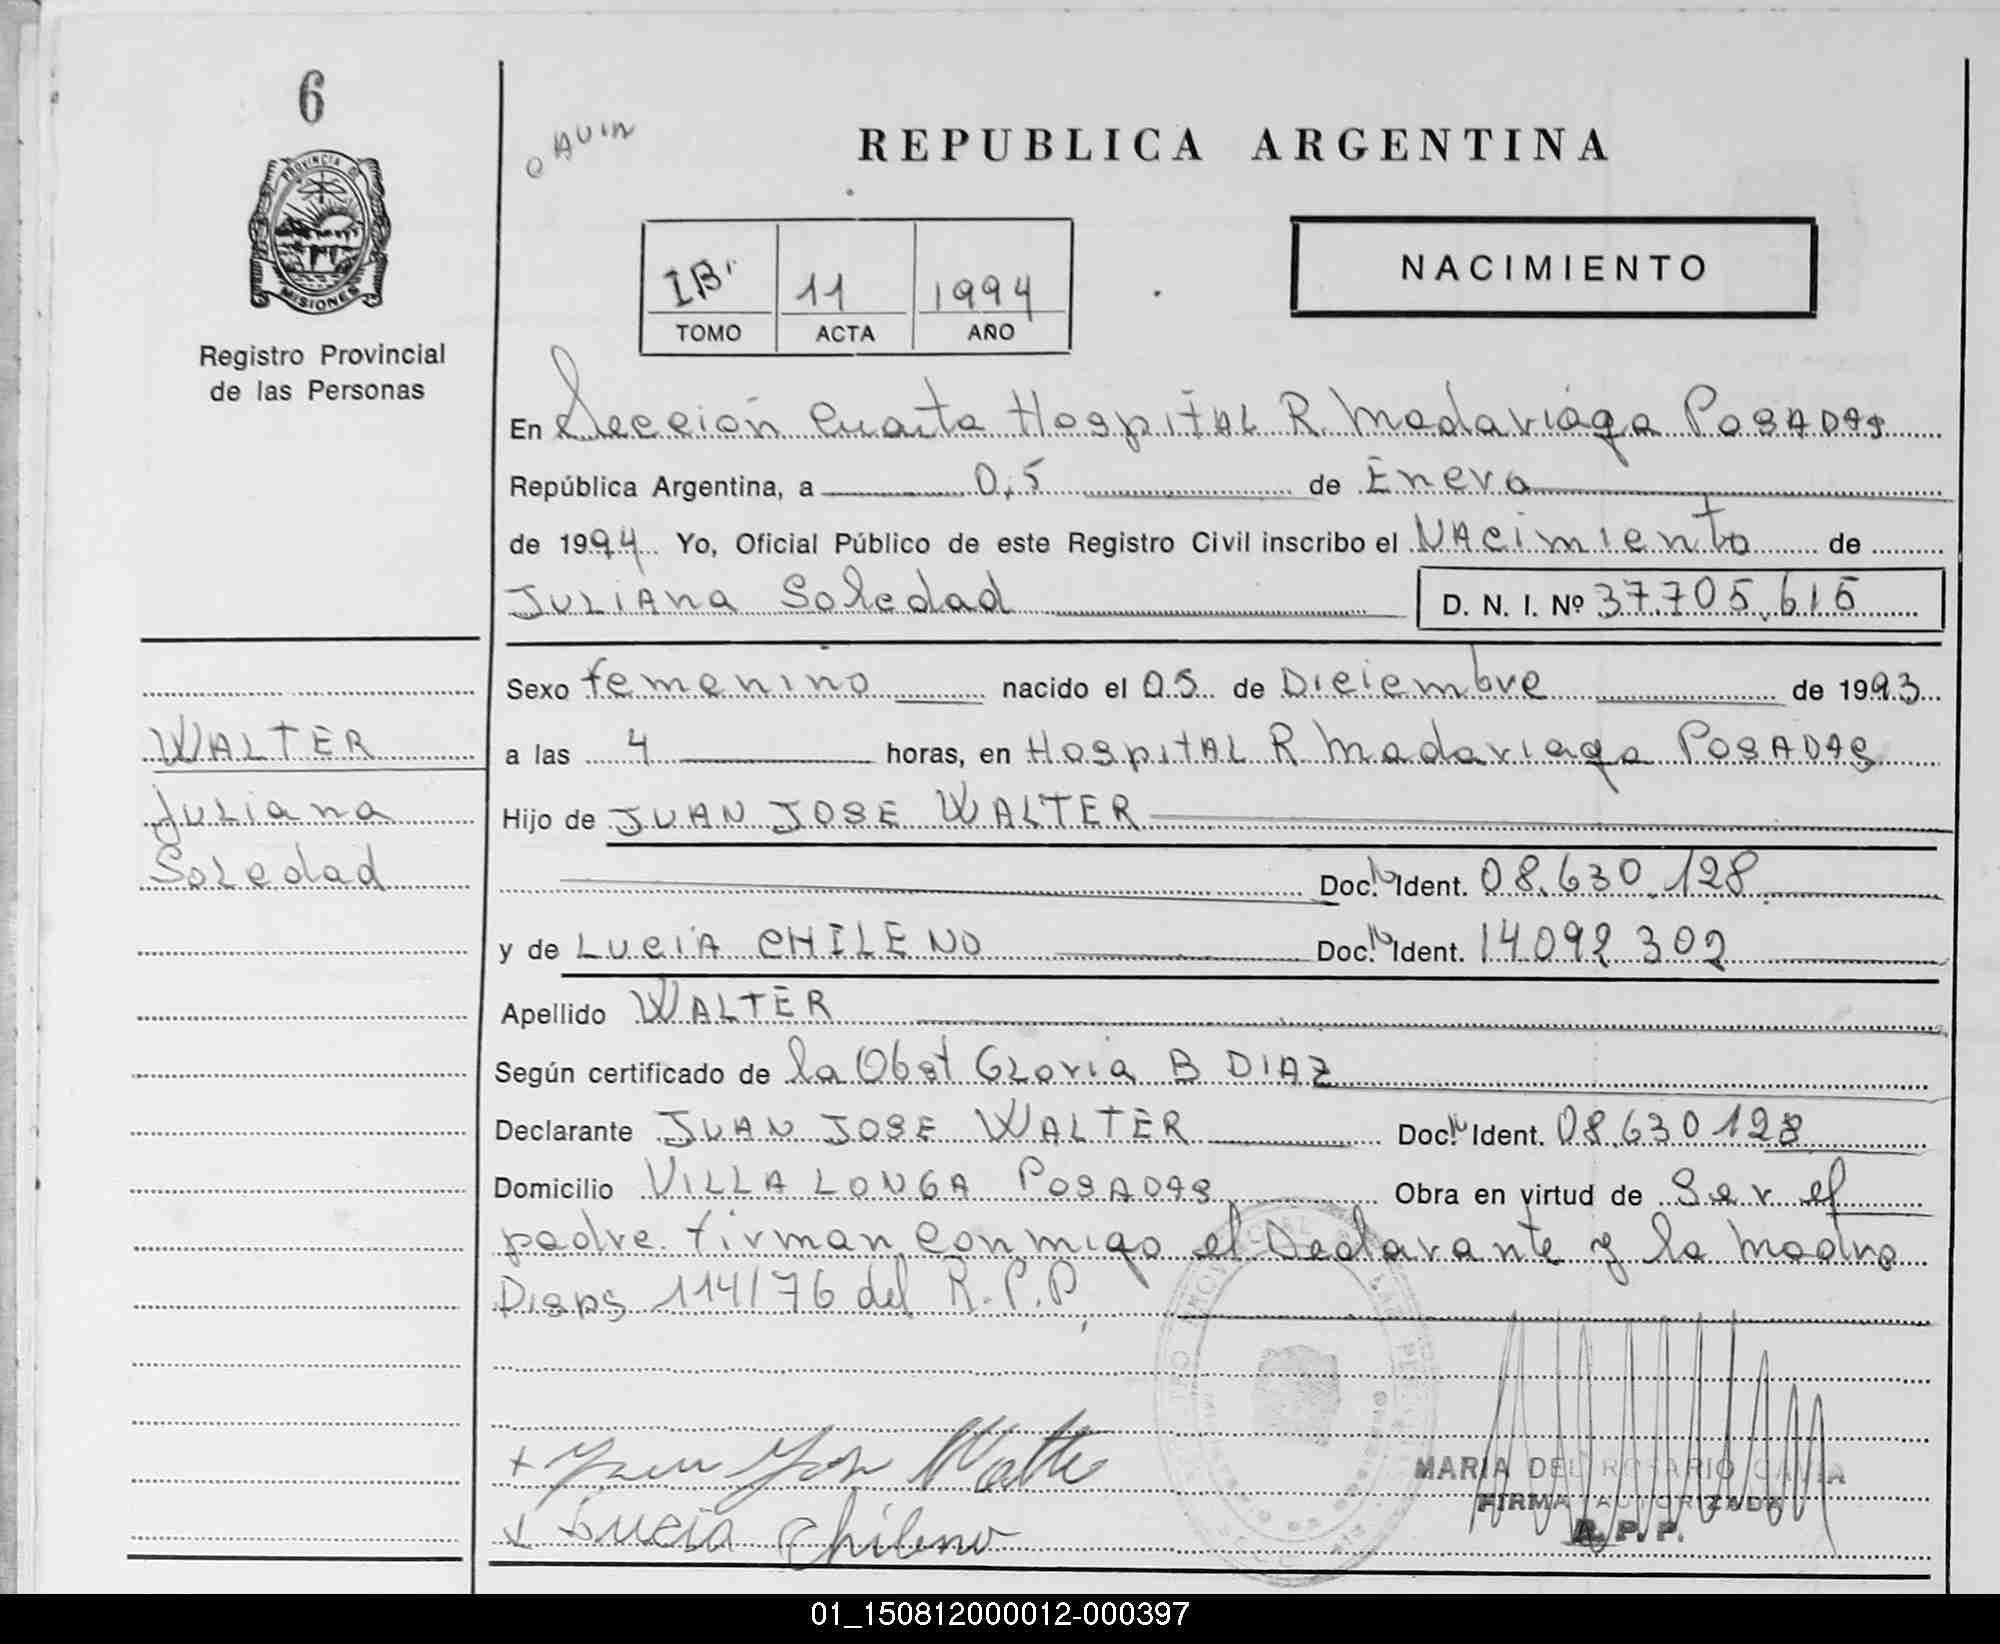 6
PROVINCIA DE
MISIONES
Registro Provincial
de las Personas
REPUBLICA ARGENTINA
NACIMIENTO
IB' 11 1994
TOMO ACTA AÑO
En Sección Cuarta Hospital R Madariaga POSADAS
República Argentina, a 05 de Enero
de 1994 Yo, Oficial Público de este Registro Civil inscribo el Nacimiento de
JULIANA Soledad D. N. I. Nº 37.705.615
Sexo femenino nacido el 05 de Diciembre de 1993
WALTER
a las 4 horas, en Hospital R Madariaga POSADAS
Juliana
Hijo de JUAN JOSE WALTER
Soledad
Doc. N Ident. 08.630.128
y de LUCIA CHILENO Doc. N Ident. 14092302
Apellido WALTER
Según certificado de la Obst Gloria B DIAZ
Declarante JUAN JOSE WALTER Doc. N Ident. 08.630128
Domicilio VILLA LONGA POSADAS Obra en virtud de Ser el
padre firman conmigo el Declarante y la madre
Disps 114/76 del R.P.P,
+ Juan Jose Walter
+ Lucia Chileno
MARIA DEL ROSARIO
FIRMA AUTORIZADA
R. P. P.
01_150812000012-000397